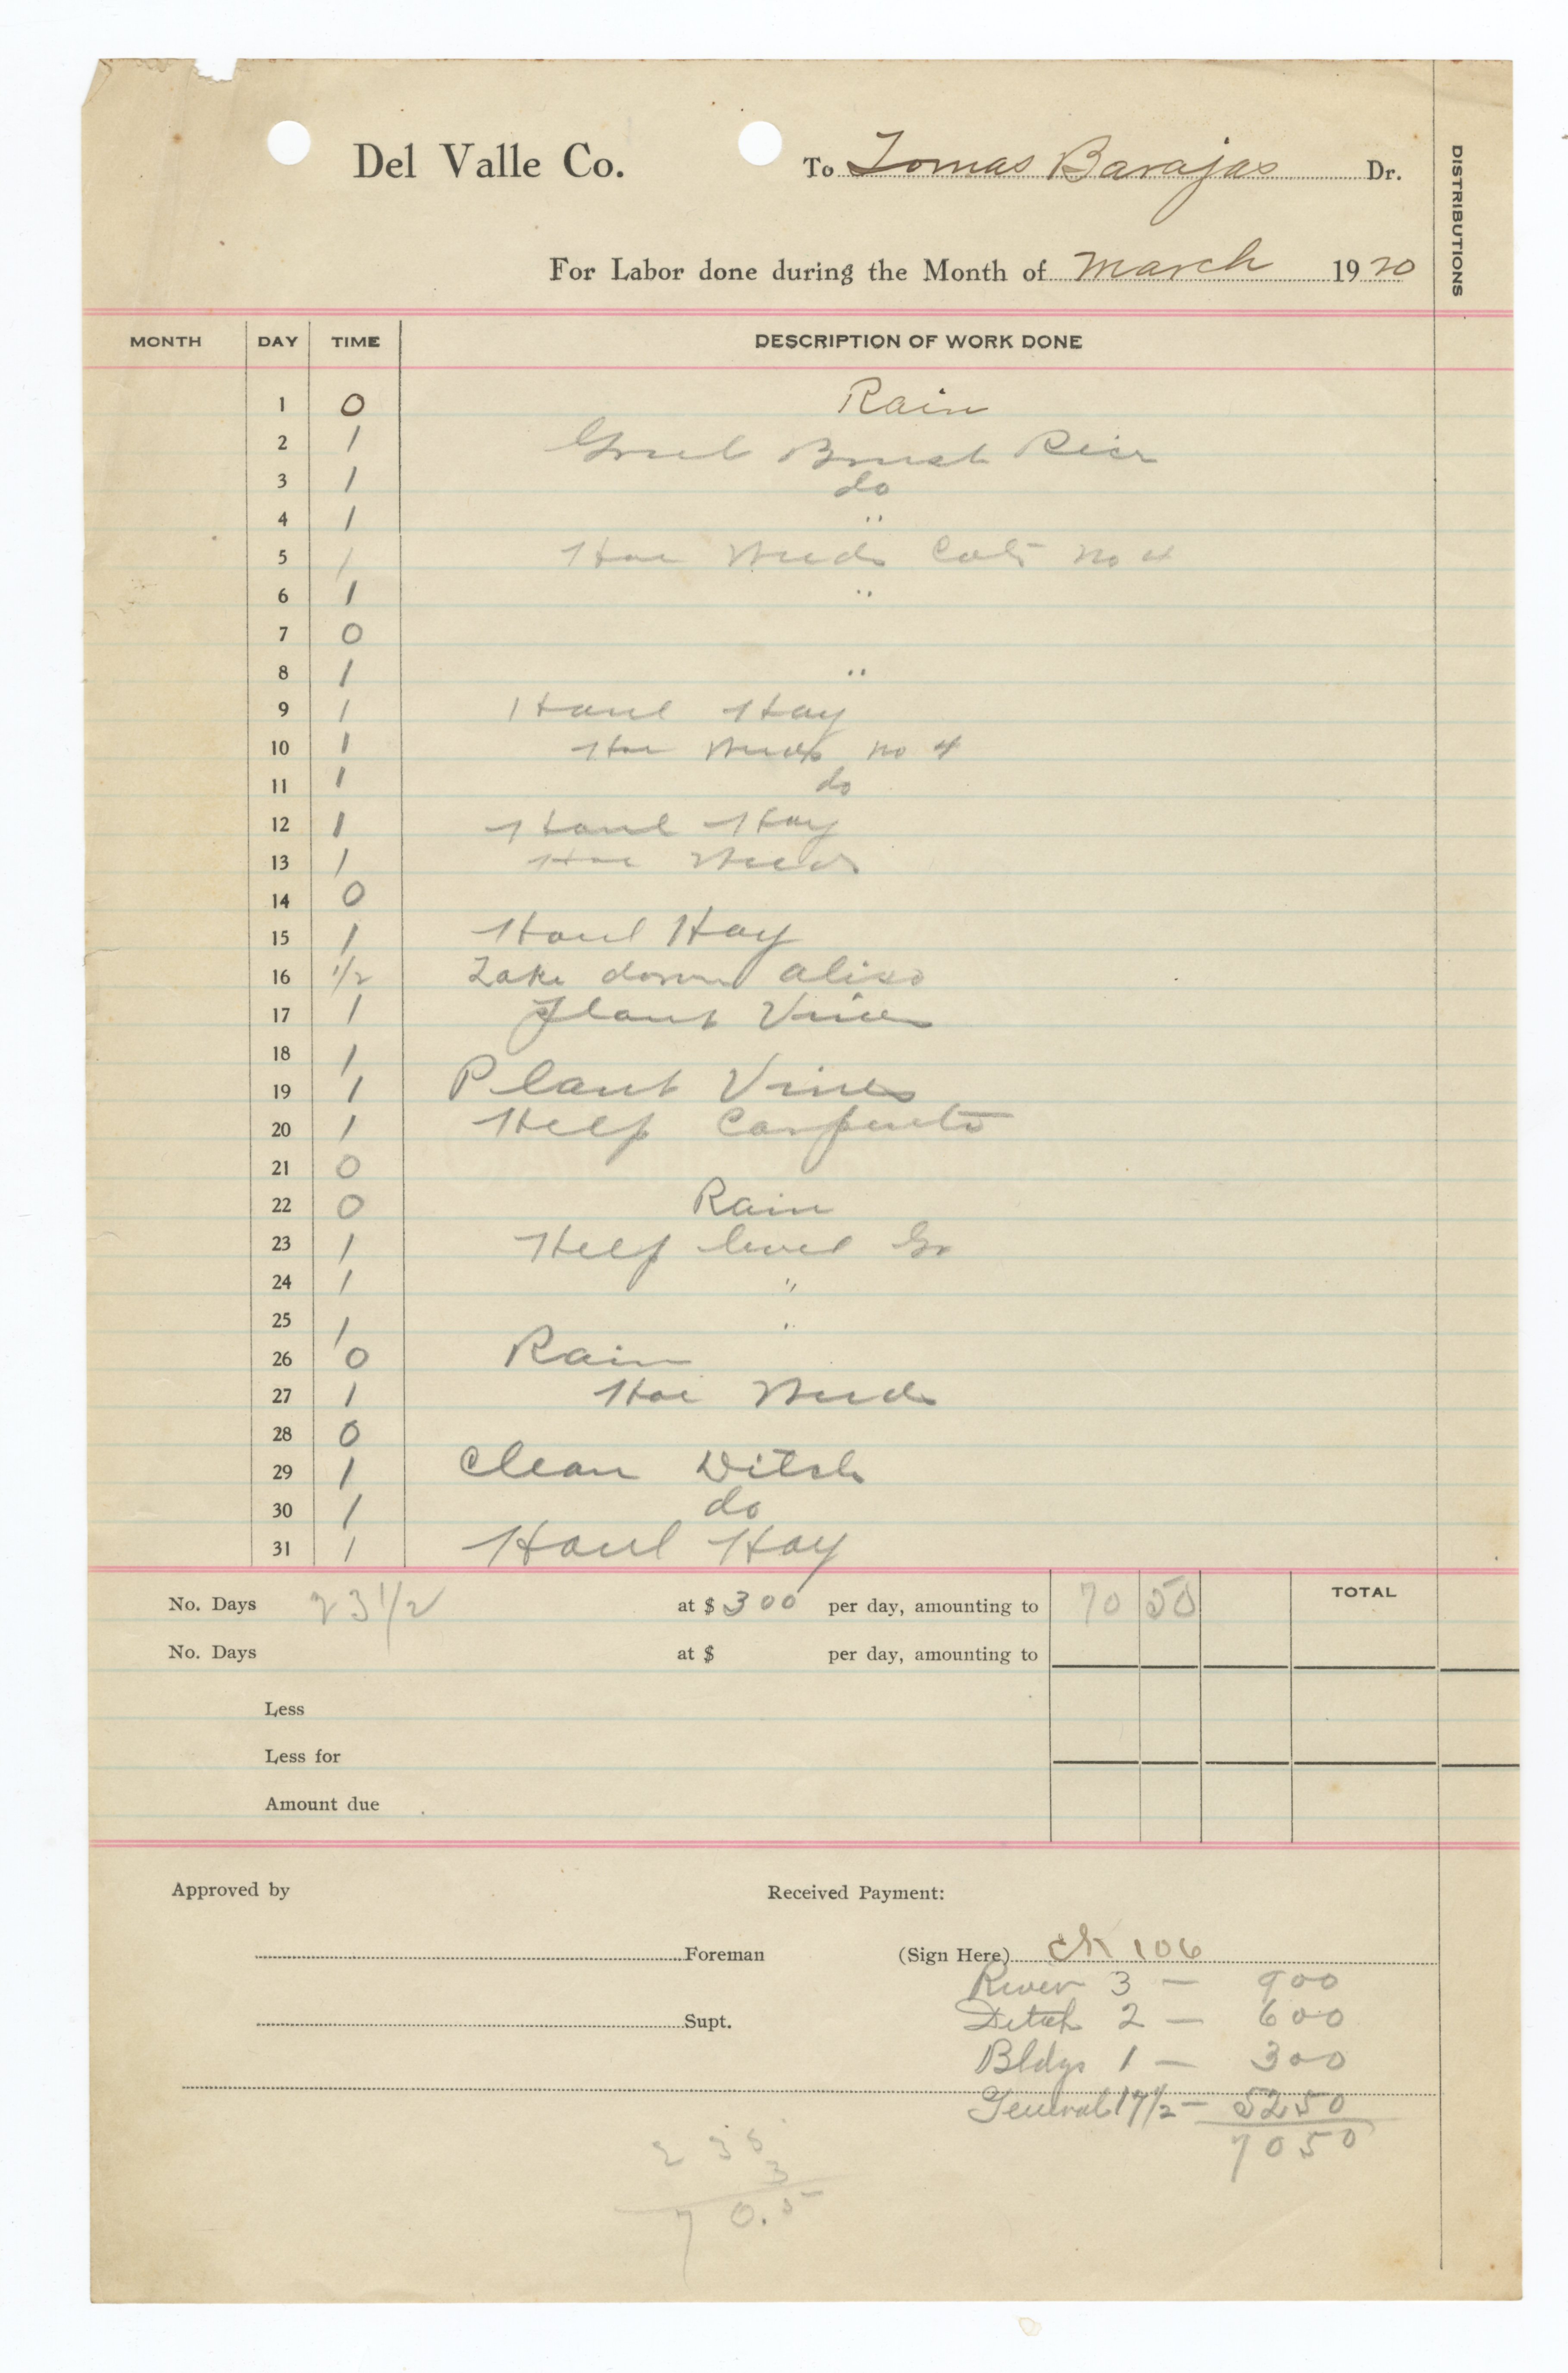 Del Valle Co. To Tomas Barajas Dr.
DISTRIBUTIONS
For Labor done during the Month of March 1920
MONTH DAY TIME DESCRIPTION OF WORK DONE
1 0 Rain
2 1 Grub Brush River
3 1 do
4 1 "
5 1 Hoe Weeds No 4
6 1 "
7 0
8 1 "
9 1 Haul Hay
10 1 Hoe Weeds no 4
11 1 do
12 1 Haul Hay
13 1 Hoe Weeds
14 0
15 1 Haul Hay
16 1/2 Take down aliso
17 1 Plant Vines
18 1
19 1 Plant Vines
20 1 Help Carpenter
21 0
22 0 Rain
23 1 Help level Gr
24 1 "
25 1 "
26 0 Rain
27 1 Hoe Weeds
28 0
29 1 Clean Ditch
30 1 do
31 1 Haul Hay
No. Days 23 1/2 at $ 3 00 per day, amounting to 70 50 TOTAL
No. Days at $ per day, amounting to
Less
Less for
Amount due
Approved by Received Payment:
Foreman (Sign Here) ck 106
River 3 — 900
Supt. Ditch 2 — 600
Bldgs 1 — 300
General 17 1/2 — 5250
7050
235
3
70.5